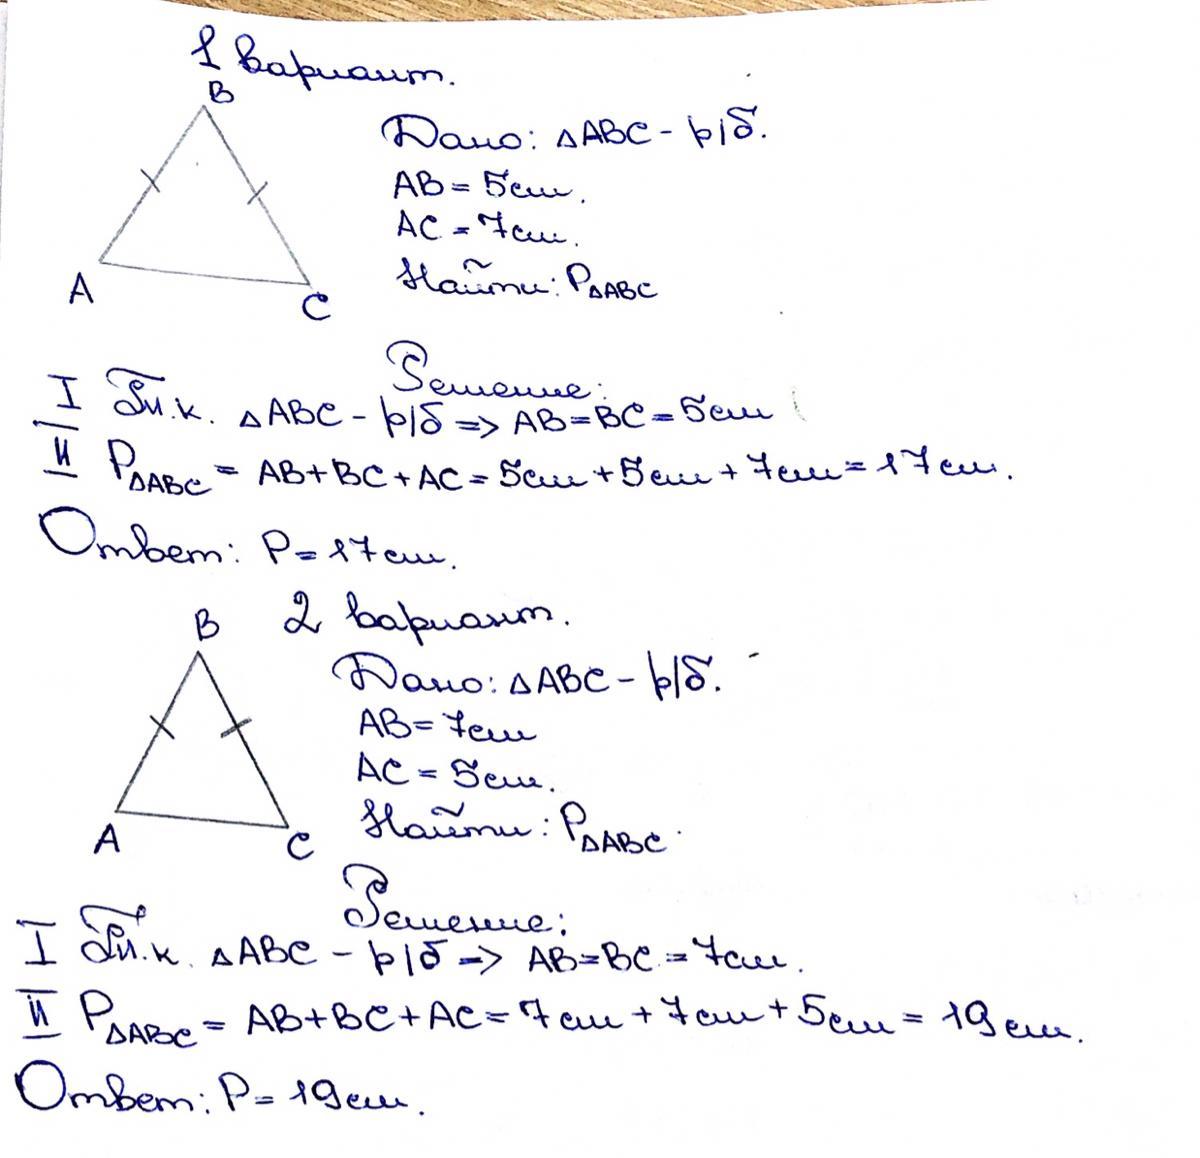 1 вариант.
B
A
C
Дано: △ABC - р/б.
AB = 5см.
AC = 7см.
Найти: P△ABC
Решение:
I Т.к. △ABC - р/б => AB=BC=5см
II P△ABC = AB+BC+AC=5см+5см+7см=17см.
Ответ: P=17см.
2 вариант.
B
A
C
Дано: △ABC - р/б.
AB=7см
AC=5см.
Найти: P△ABC.
Решение:
I Т.к. △ABC - р/б => AB=BC=7см.
II P△ABC = AB+BC+AC=7см+7см+5см=19см.
Ответ: P=19см.